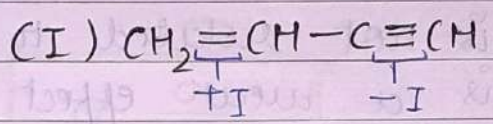 (I) CH₂=CH-C≡CH
+I -I